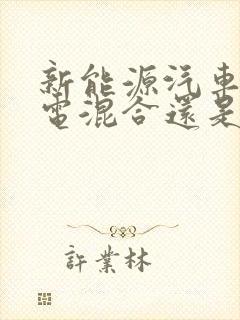 新能源汽車
電混合還是
許業林